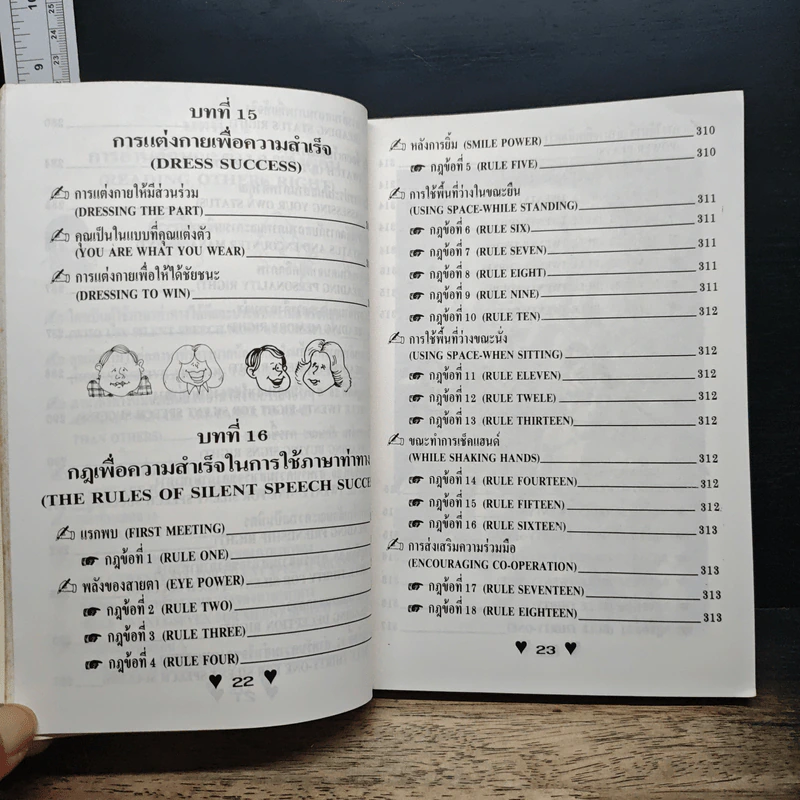 บทที่ 15
การแต่งกายเพื่อความสำเร็จ
(DRESS SUCCESS)
การแต่งกายให้มีส่วนร่วม
(DRESSING THE PART)
คุณเป็นในแบบที่คุณแต่งตัว
(YOU ARE WHAT YOU WEAR)
การแต่งกายเพื่อให้ได้ชัยชนะ
(DRESSING TO WIN)
บทที่ 16
กฎเพื่อความสำเร็จในการใช้ภาษาท่าทาง
(THE RULES OF SILENT SPEECH SUCCE
แรกพบ (FIRST MEETING)
กฎข้อที่ 1 (RULE ONE)
พลังของสายตา (EYE POWER)
กฎข้อที่ 2 (RULE TWO)
กฎข้อที่ 3 (RULE THREE)
กฎข้อที่ 4 (RULE FOUR)
22
หลังการยิ้ม (SMILE POWER) 310
กฎข้อที่ 5 (RULE FIVE) 310
การใช้พื้นที่ว่างในขณะยืน
(USING SPACE-WHILE STANDING) 311
กฎข้อที่ 6 (RULE SIX) 311
กฎข้อที่ 7 (RULE SEVEN) 311
กฎข้อที่ 8 (RULE EIGHT) 311
กฎข้อที่ 9 (RULE NINE) 311
กฎข้อที่ 10 (RULE TEN) 312
การใช้พื้นที่ว่างขณะนั่ง
(USING SPACE-WHEN SITTING) 312
กฎข้อที่ 11 (RULE ELEVEN) 312
กฎข้อที่ 12 (RULE TWELE) 312
กฎข้อที่ 13 (RULE THIRTEEN) 312
ขณะทำการเช็คแฮนด์
(WHILE SHAKING HANDS) 312
กฎข้อที่ 14 (RULE FOURTEEN) 312
กฎข้อที่ 15 (RULE FIFTEEN) 312
กฎข้อที่ 16 (RULE SIXTEEN) 313
การส่งเสริมความร่วมมือ
(ENCOURAGING CO-OPERATION) 313
กฎข้อที่ 17 (RULE SEVENTEEN) 313
กฎข้อที่ 18 (RULE EIGHTEEN) 313
23